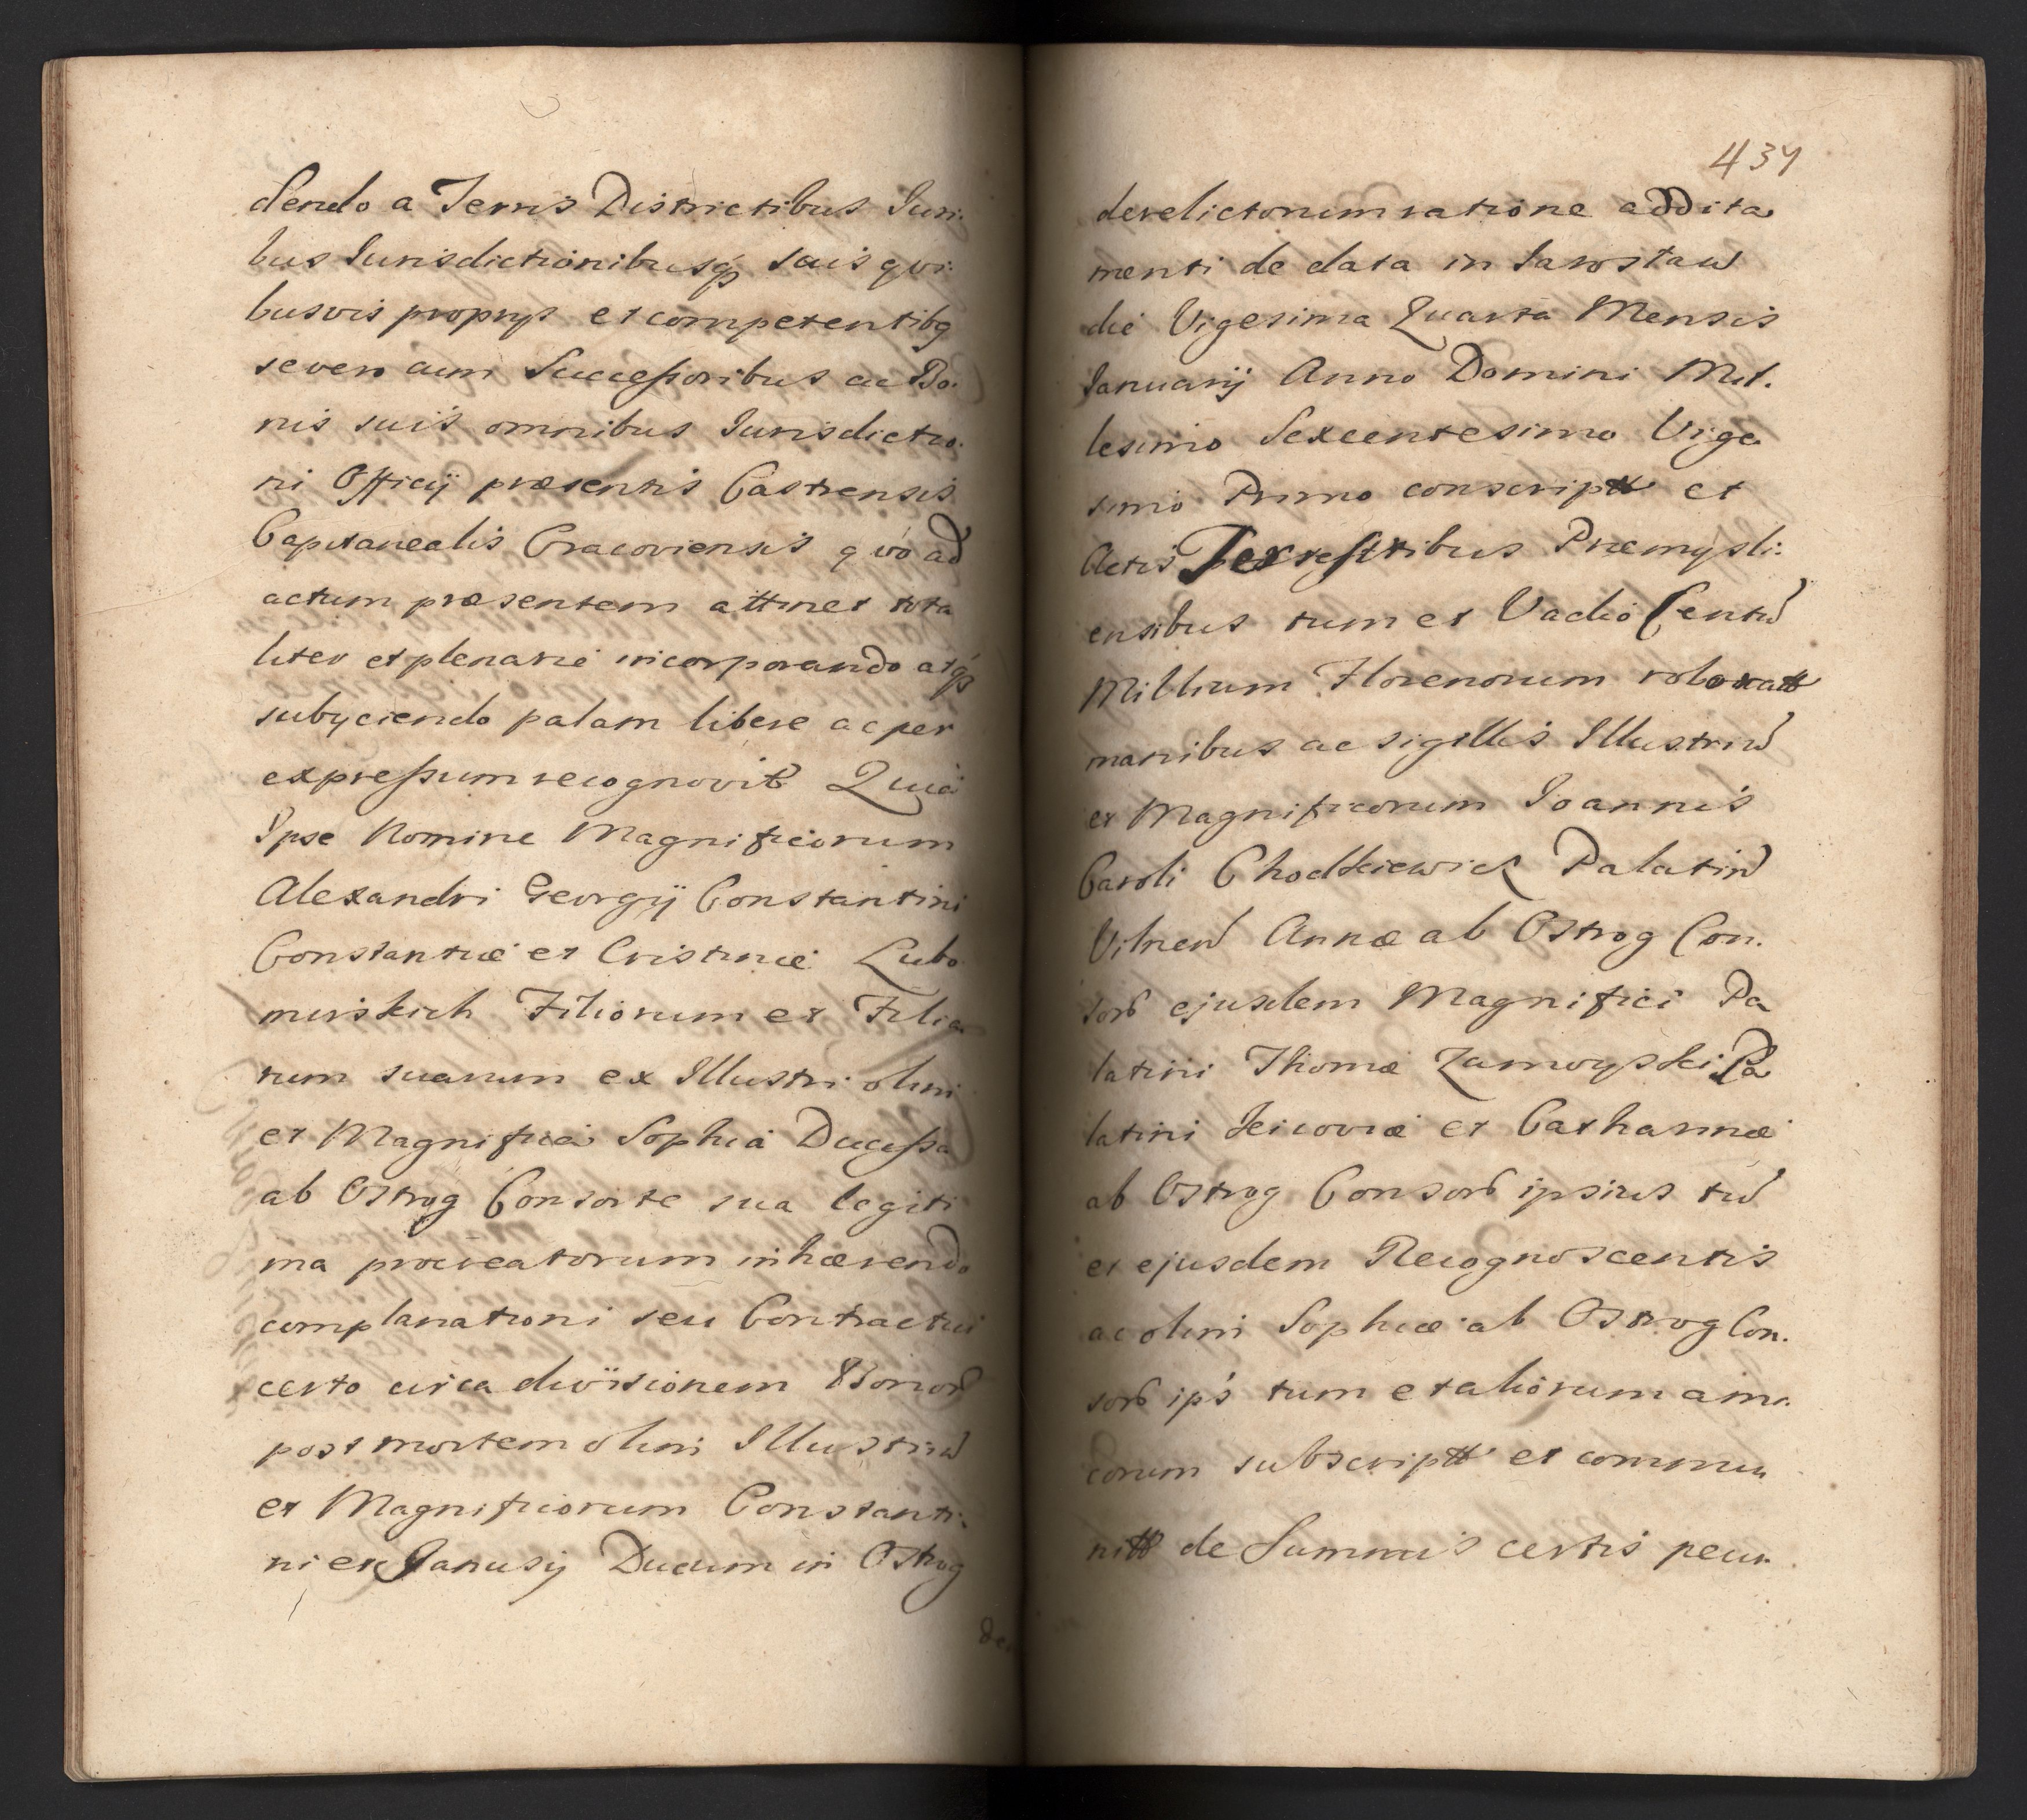 dendo a Terris Districtibus Juri:
bus Jurisdictionibusq̃ suis qvi:
busvis proprijs et competentibq
se vero cum Successoribus ac Bo:
nis suis omnibus Jurisdictio:
ni Officij præsentis Castrensis
Capitanealis Cracoviensis qvo ad
actum præsentem attinet tota
liter et plenarie incorporando atq̃
subyciendo palam libere ac per
expressum recognovit Quia
Ipse Nomine Magnificorum
Alexandri Georgij Constantini
Constantiæ et Cristinæ Lubo
mirskich Filiorum et Filia
rum suarum ex Illustri olim
et Magnifica Sophia Ducissa
ab Ostrog Consorte sua legiti
ma procreatorum inhærendo
complanationi seu Contractui
certo circa divisionem Bonor
post mortem olim Illustriu
et Magnificorum Constanti:
ni et Janusij Ducum in Ostrog
de
437
derelictorum ratione addita
menti de data in Jarosław
die Vigesima Quarta Mensis
Januarij Anno Domini Mil:
lesimo Sexcentesimo Vige
simo Primo conscriptt et
Actis Terrestribus Præmysli:
ensibus tum et Vadio Centu
Millium Florenorum roboratt
manibus ac sigillis Illustriu
et Magnificorum Joannis
Caroli Chodkiewicz Palatin
Vilnen Annæ ab Ostrog Con:
sort ejusdem Magnifici Pa
latini Thomæ Zamoyski Pa
latini Kijoviæ et Catharinæ
ab Ostrog Consort ipsius tu
et ejusdem Recognoscentis
ac olim Sophiæ ab Ostrog Con:
sort ips tum et aliorum ami:
corum subscriptt et commu
nitt de Summis certis pecu: